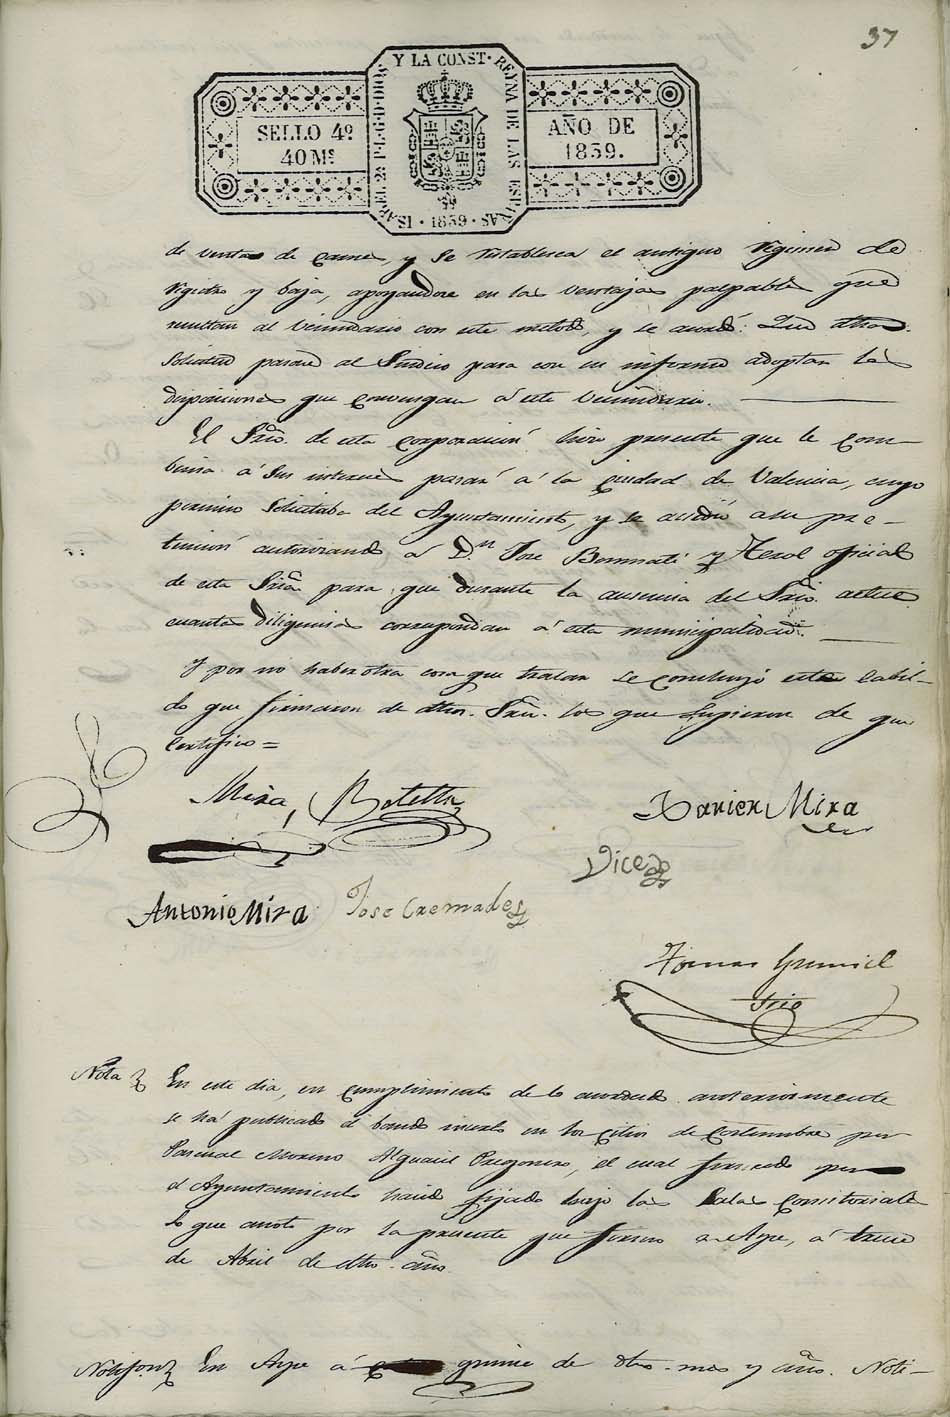 37
ISABEL 2ª P.L.G.D.DIOS Y LA CONST. REYNA DE LAS ESPAÑAS
SELLO 4º
40 Mˢ
AÑO DE
1839.
1839
de ventas de carnes, y se restablesca el antiguo regimen de
registro y baja, apoyandose en las ventajas palpables que
resultan al vecindario con este metodo, y se acordó: Que dha.
solicitud pasase al Sindico para con su informe adoptar las
disposiciones que convengan á este vecindario.
El Srio. de esta corporacion hizo presente que le com-
benia á sus intereses pasar á la Ciudad de Valencia, cuyo
permiso solicitaba del Ayuntamiento, y se accedió a su pre-
tencion autorizando á Dn. Jose Bonmati y Terol oficial
de esta Sria. para que durante la ausencia del Srio. actue
cuantas diligencias correspondan á esta municipalidad.
Y por no haber otra cosa que tratar se concluyó este cabil-
do que firmaron de dhos. Sres. los que supieron de que
certifico =
Mira, Botella
Xavier Mira
Vice
Antonio Mira Jose Cremades
Tomas Gumiel
Srio
Nota En este dia, en cumplimiento de lo acordado anteriormente
se há publicado el bando inserto en los citios de costumbre por
Pascual Moreno Alguacil Pregonero, el cual firmado por
el Ayuntamiento haide fijado bajo las Salas Consistoriales
lo que anoto por la presente que firmo en Aspe, á trece
de Abril de dho. año
Notifon. En Aspe á quince de dho. mes y año. Noti-